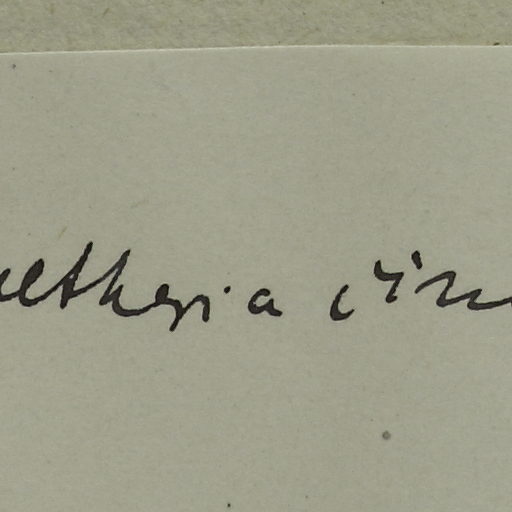 ultheria cin